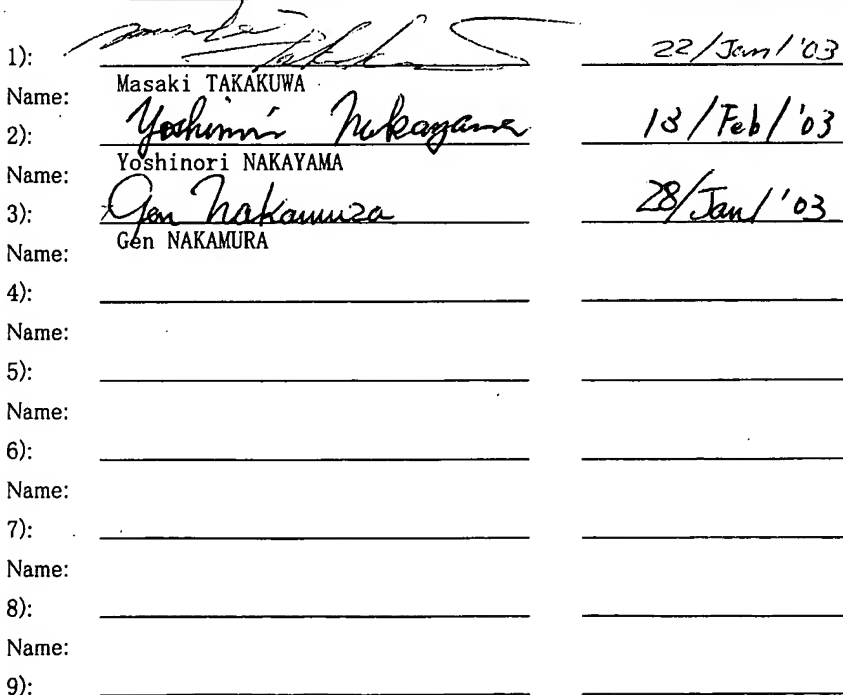 1): Masaki Takakuwa 22/Jan/'03
Name: Masaki TAKAKUWA
2): Yoshinori Nakayama 13/Feb/'03
Name: Yoshinori NAKAYAMA
3): Gen Nakamura 28/Jan/'03
Name: Gen NAKAMURA
4):
Name:
5):
Name:
6):
Name:
7):
Name:
8):
Name:
9):